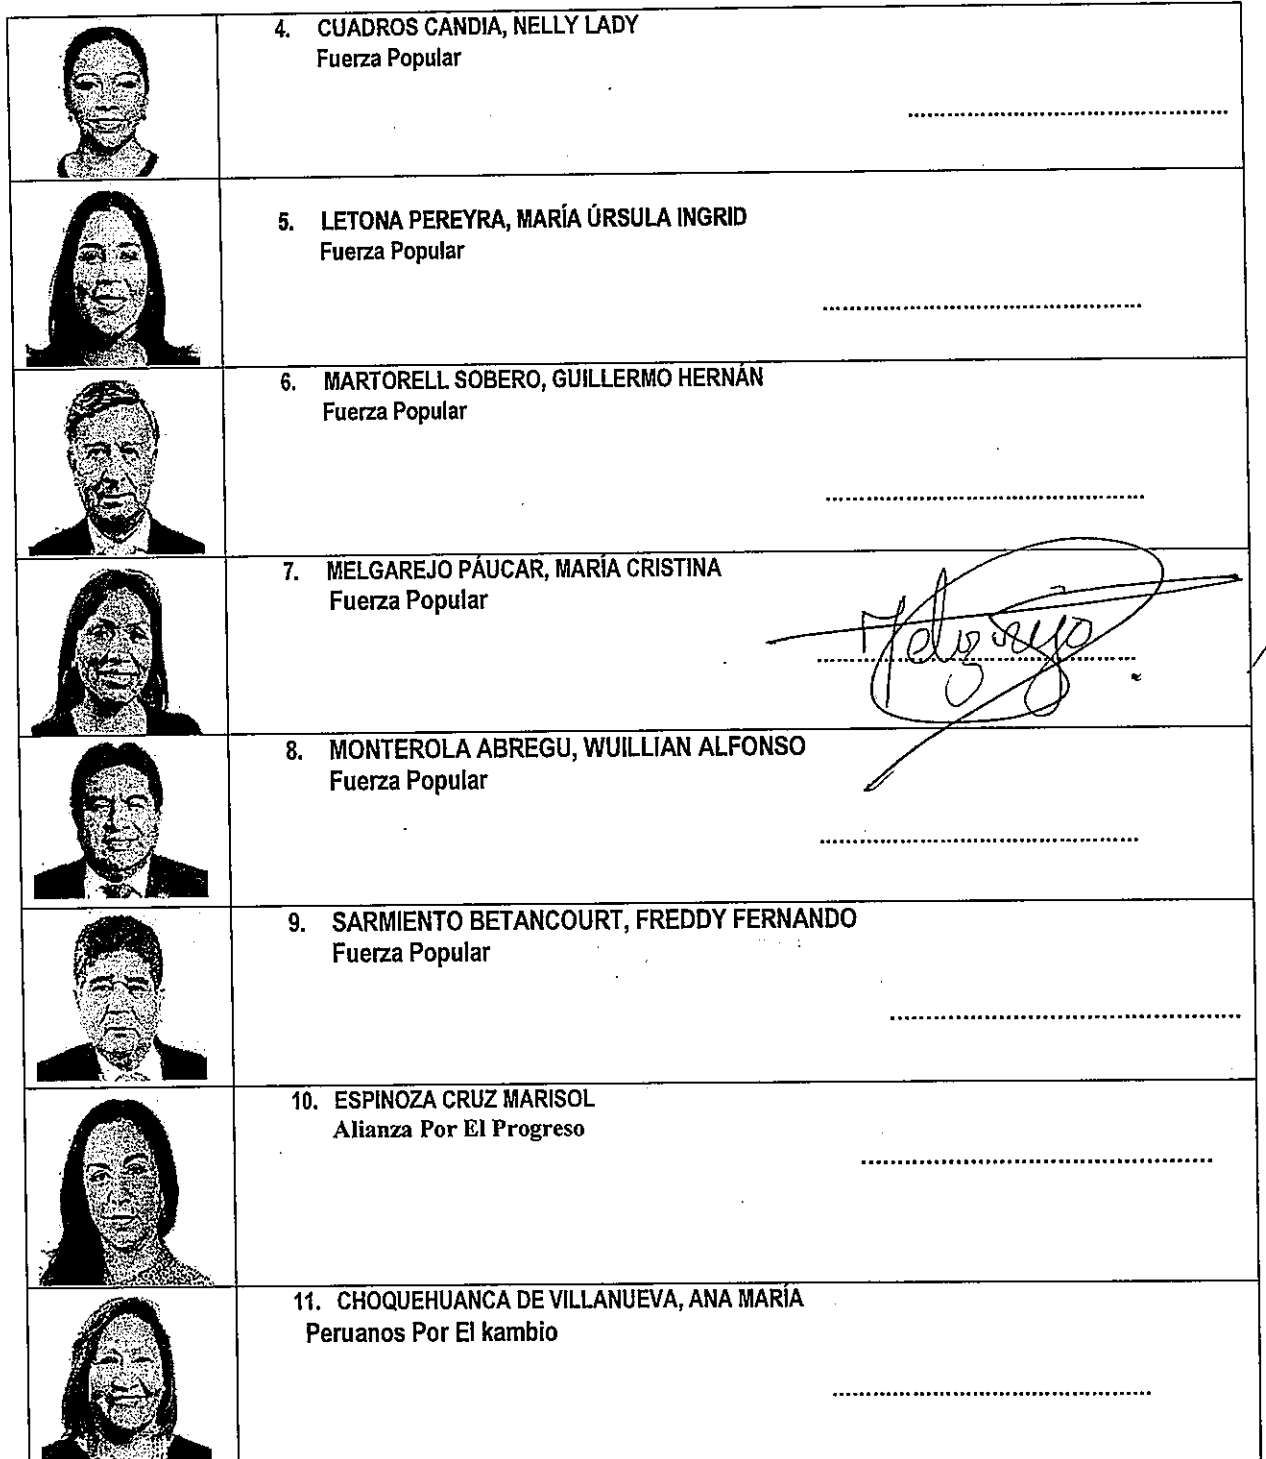 4. CUADROS CANDIA, NELLY LADY
Fuerza Popular
5. LETONA PEREYRA, MARÍA ÚRSULA INGRID
Fuerza Popular
6. MARTORELL SOBERO, GUILLERMO HERNÁN
Fuerza Popular
7. MELGAREJO PÁUCAR, MARÍA CRISTINA
Fuerza Popular
Melgarejo
8. MONTEROLA ABREGU, WUILLIAN ALFONSO
Fuerza Popular
9. SARMIENTO BETANCOURT, FREDDY FERNANDO
Fuerza Popular
10. ESPINOZA CRUZ MARISOL
Alianza Por El Progreso
11. CHOQUEHUANCA DE VILLANUEVA, ANA MARÍA
Peruanos Por El kambio